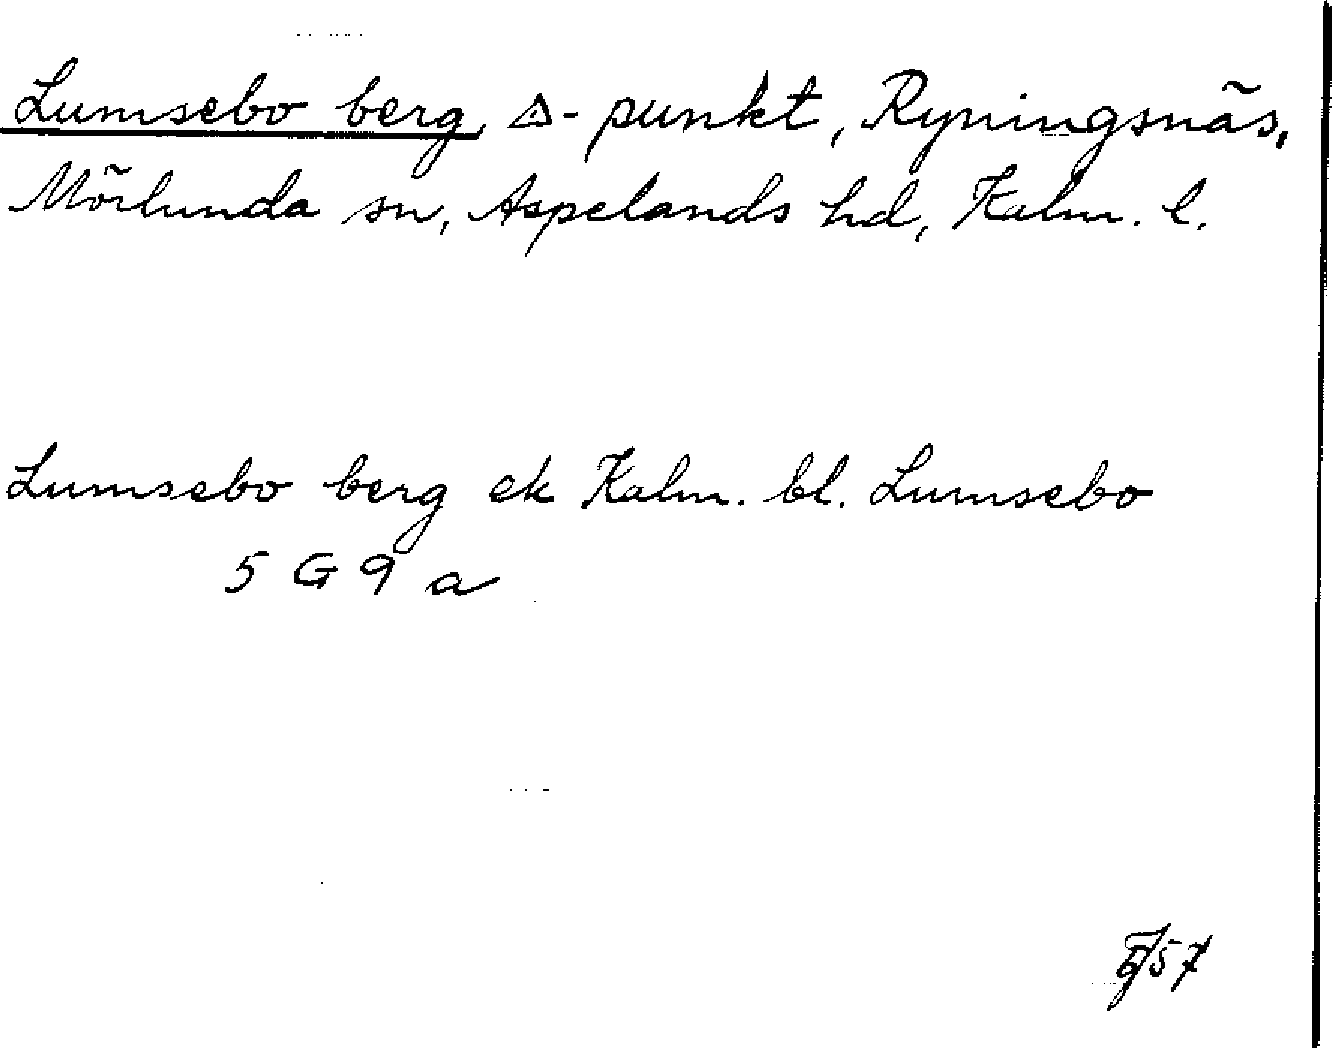 Lumsebo berg, △-punkt, Ryningsnäs,
Mörlunda sn, Aspelands hd, Kalm. l.
Lumsebo berg ek Kalm. bl. Lumsebo
5 G 9 a
57